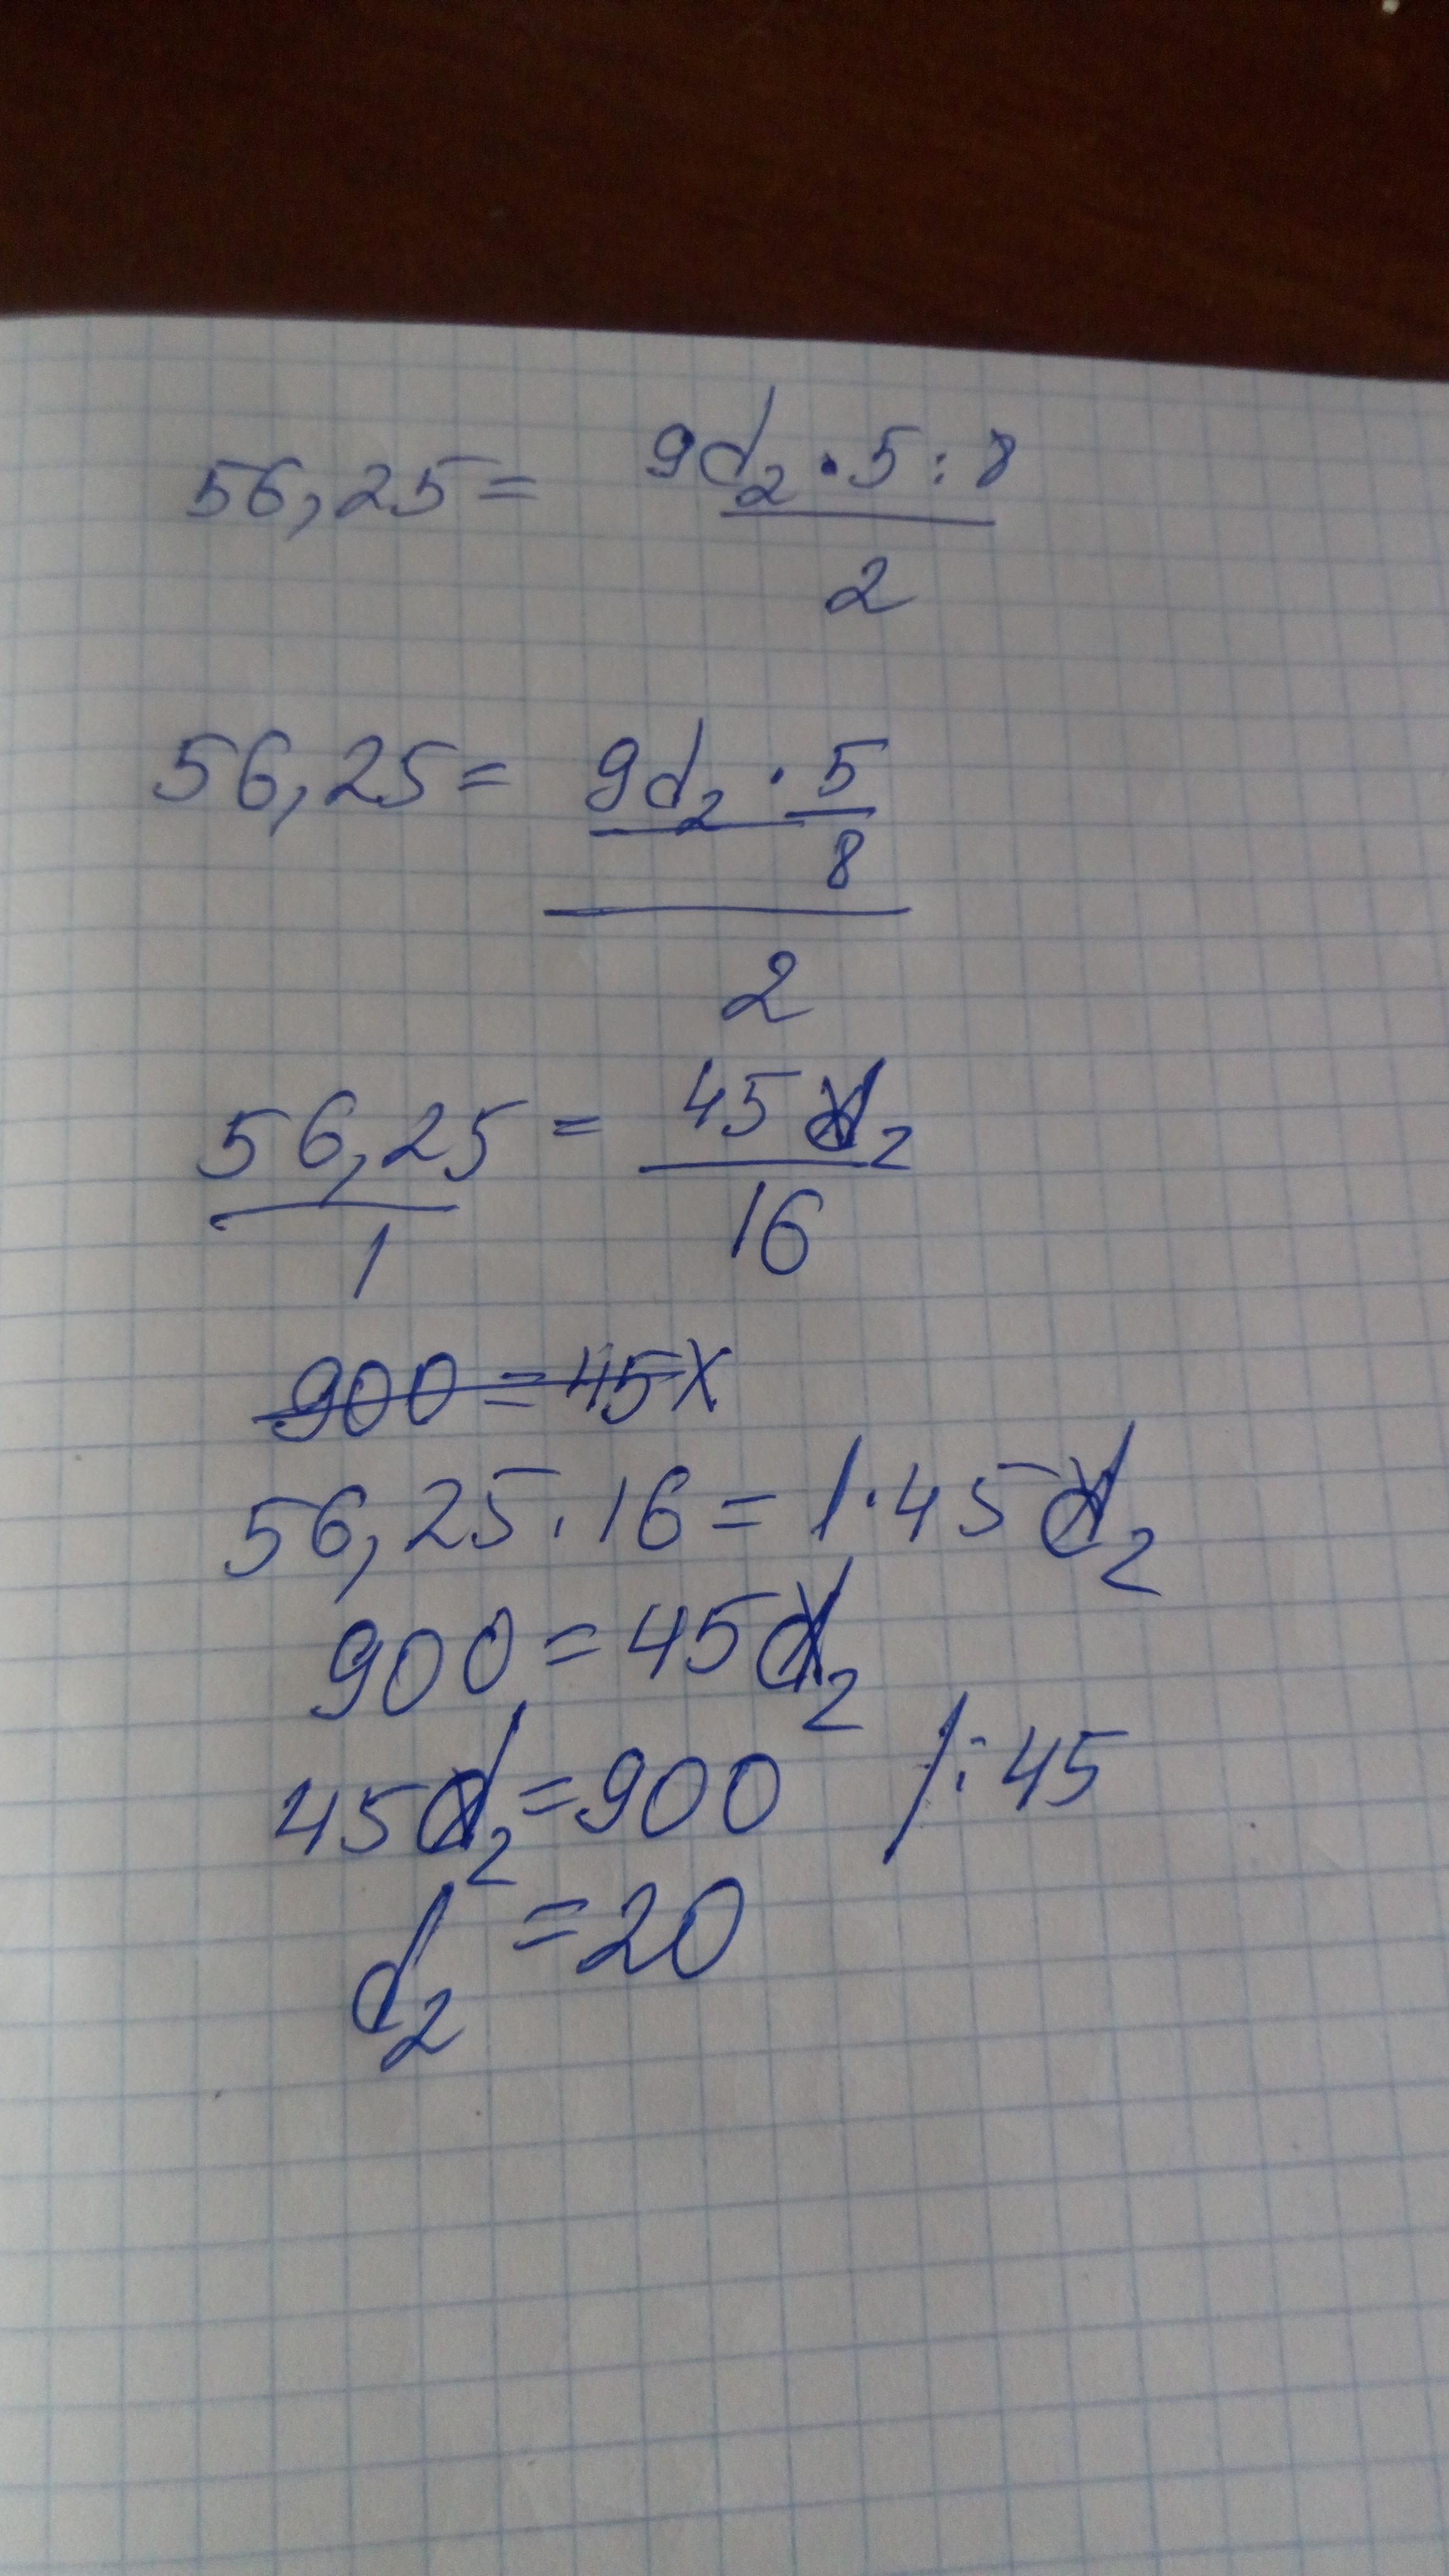 56,25 = 9d₂ · 5 : 8
2
56,25 = 9d₂ · 5
8
2
56,25 = 45d₂
1 16
900 = 45x
56,25 · 16 = 1 · 45d₂
900 = 45d₂
45d₂ = 900 / : 45
d₂ = 20